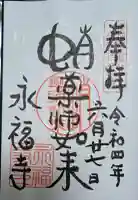 奉拝
令和四年
六月廿七日
蛸薬師如来
永福寺